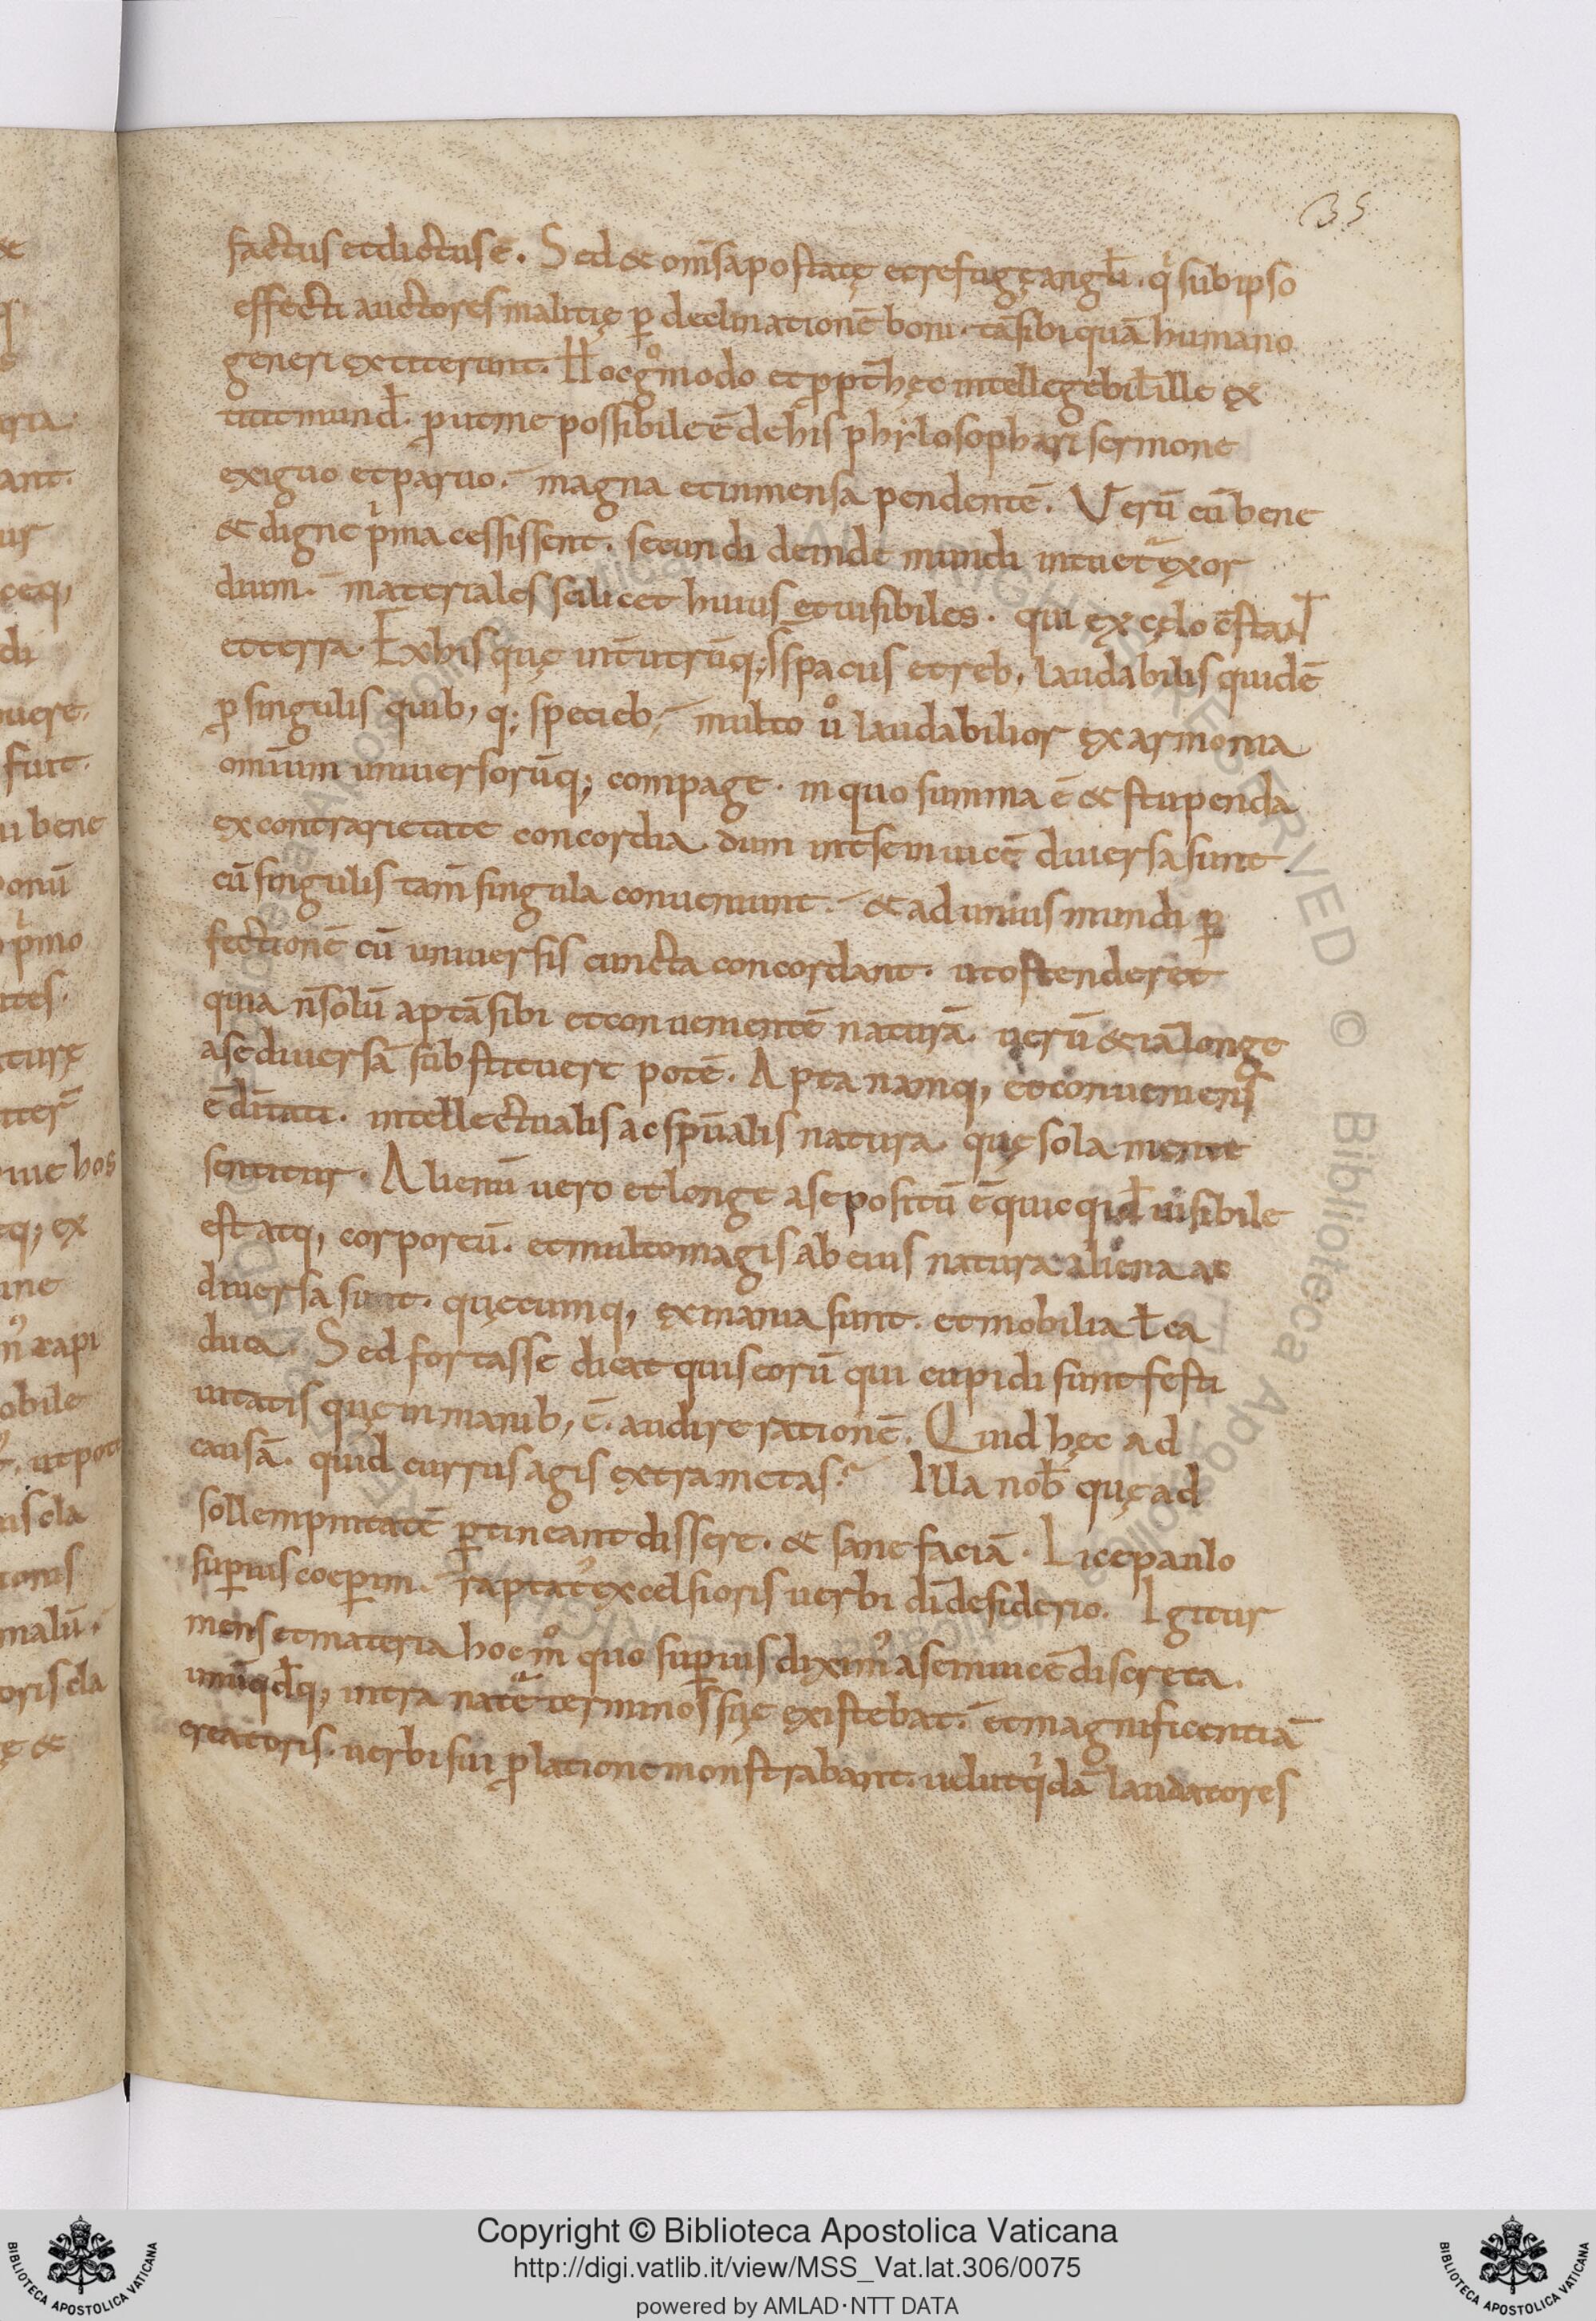 35
factus et dictus ē. Sed & om̄s apostatę et refugę angl̄i. qi sub ipso
effecti auctores malitię p̱ declinationē boni. tā sibi quā humano
generi extiterunt. Hoc g̊ modo et pp̄t hęc intellegebil̄ ille ex
titit mund̄. prout me possibile ē de his phylosophari sermone
exiguo et paruo. magna et inmensa pendentē. Verū cū bene
& digne pima cessissent. secundi deinde mundi intuet̄ exor
dium. materiales scilicet huius et uisibiles. qui ex cęlo cstat
et terra. Ex his quę int̄ utrūq; s̄ spacus et reb, laudabilis quidē
p singulis quib, q; specieb, multo ů laudabilior ex armonia
omīum uniuersorūq; compage. in quo summa ē & stupenda
ex contrarietate concordia. dum int̄ se inuicē diuersa sunt.
cū singulis tam̄ singula conueniunt. & ad unius mundi p̱
fectionē cū uniuersis cuncta concordant. ut ostenderet
quia n̄ solū aptā sibi et conuenientē naturā. uerū & iā longe
a se diuersā substituere potē. Apta namq, et conueniens
ē diuitati. intellectualis ac spūalis natura. quę sola mente
sentitur. Alienū uero et longe a se positū ē quicqid uisibile
est atq, corporeū. et multo magis ab eius natura aliena ac
diuersa sunt. quęcumq, exmania sunt. et mobilia t̄ ca
duca. Sed fortasse dicat quis eorū qui cupidi sunt festi
uitatis quę in manib, ē. audire rationē. Quid hęc ad
causā. quid currus agis extra metas. Illa nob̄ quę ad
sollempnitatē p̱tineant dissere. & sane faciā. Lice paulo
sup̱ius coep̱im. raptat' excelsioris uerbi dī desiderio. Igitur
mens et materia hoc m̊ quo sup̱ius dixim' a se inuicē discreta.
unūqdq; intra natę terminos suę existebat. et magnificentiā
creatoris. uerbi sui p latione monstrabant. uelut qidā laudatores
Copyright © Biblioteca Apostolica Vaticana
http://digi.vatlib.it/view/MSS_Vat.lat.306/0075
powered by AMLAD·NTT DATA
BIBLIOTECA APOSTOLICA VATICANA
BIBLIOTECA APOSTOLICA VATICANA